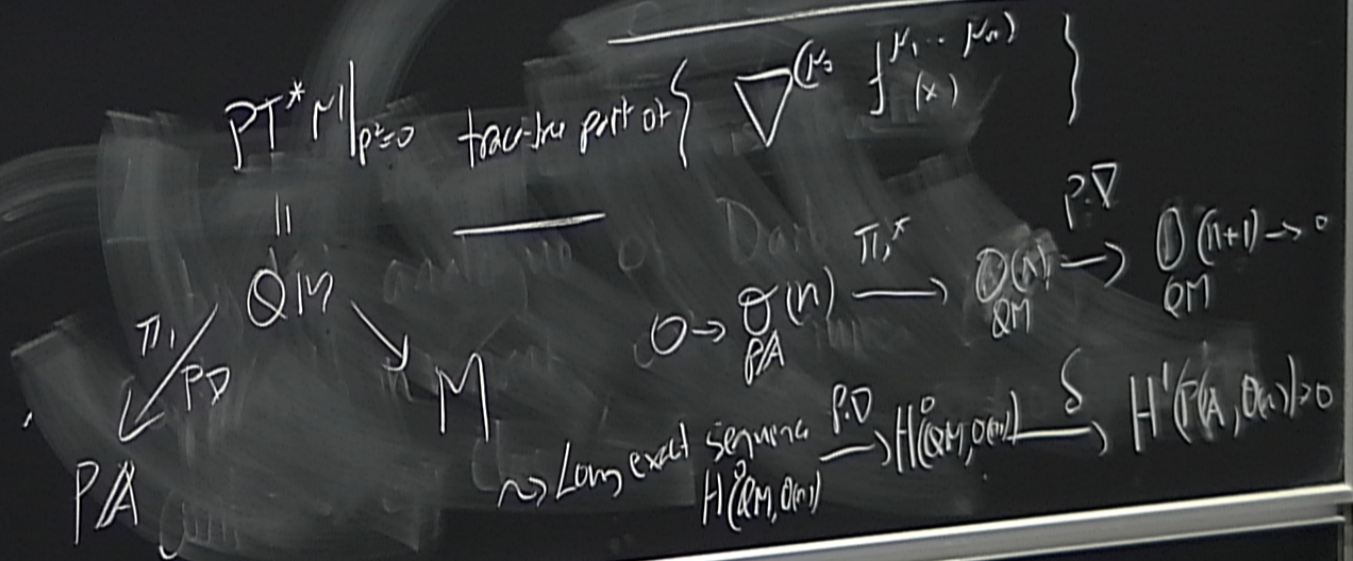 PT*M|_{p²=0} trace-free part of { ∇^{(μ_0} f^{μ_1 ... μ_n)}(x) }
||
QM
π_1 P.D
M
PA
0 → O_{PA}(n) →^{π_1^*} O_{QM}(n) →^{P.∇} O_{QM}(n+1) → 0
~> Long exact sequence
H^0(QM, O(n)) →^{P.D} H^0(QM, O(n)) →^{δ} H^1(PA, O(n)) → 0